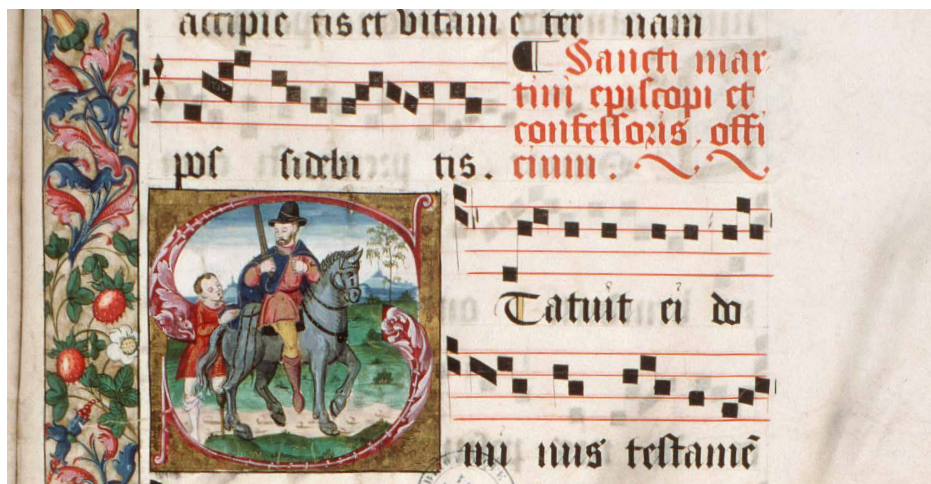 accipie tis et vitam e ter nam
¶ Sancti mar
tini episcopi et
confessoris. offi
cium.
pos sidebi tis.
Tatuit ei do
mi nus testamē